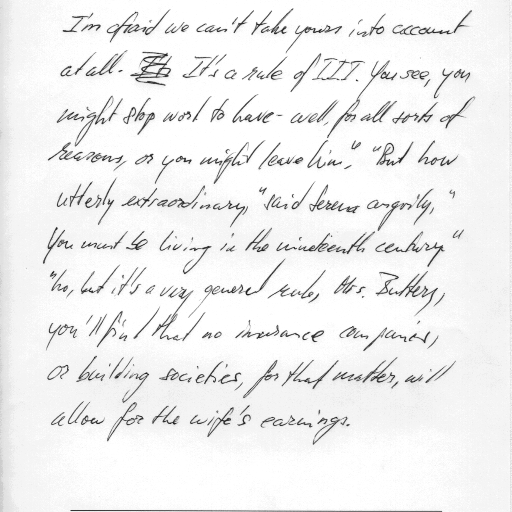 I'm afraid we can't take yours into account
at all. It's a rule of III. You see, you
might stop work to have - well, for all sorts of
reasons, or you might leave him", "But how
utterly extraordinary," said Serena angrily, "
You must be living in the nineteenth century."
"No, but it's a very general rule, Mrs. Buttery,
you'll find that no insurance companies,
or building societies, for that matter, will
allow for the wife's earnings.